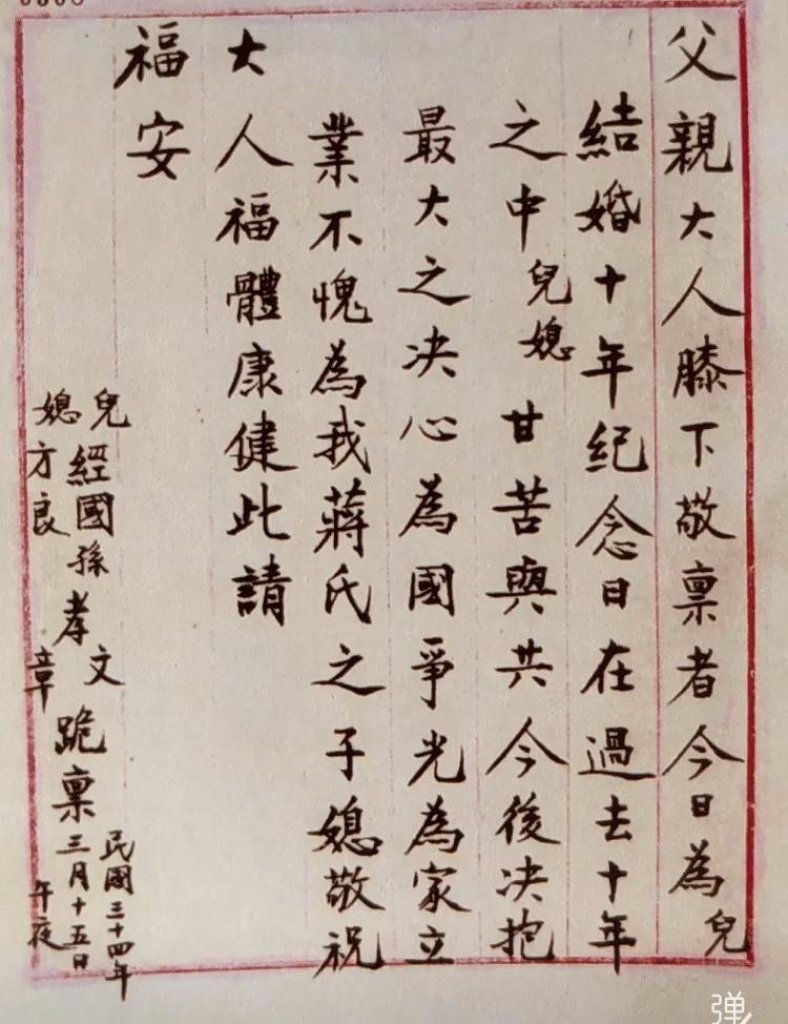 父親大人膝下敬禀者今日為兒
結婚十年紀念日在過去十年
之中兒媳甘苦與共今後决抱
最大之决心為國爭光為家立
業不愧為我蔣氏之子媳敬祝
大人福體康健此請
福安
兒經國孫孝文章跪禀
媳方良
民國三十四年
三月十五日
午夜
弹